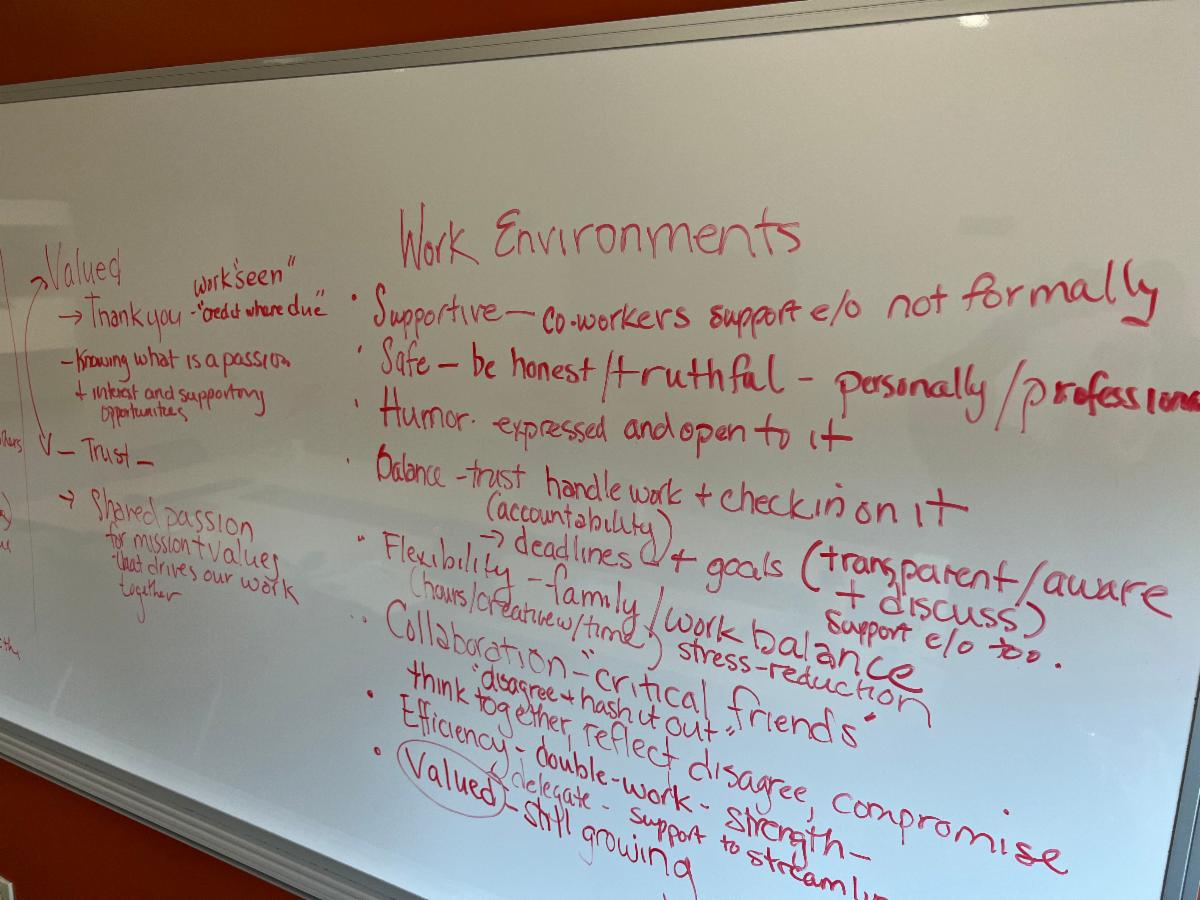 Work Environments
• Supportive — co-workers support e/o not formally
• Safe — be honest/truthful - personally/professiona
• Humor. expressed and open to it
• Balance - trust handle work + check in on it
(accountability)
→ deadlines + goals (transparent/aware
+ discuss)
support e/o too.
• Flexibility - family/work balance
(hours/creative w/time) stress-reduction
• Collaboration - "critical friends"
"disagree + hash it out"
think together, reflect disagree, compromise
• Efficiency - double-work - strength -
delegate - support to streamli
• Valued - still growing
Valued
work "seen"
→ Thank you - "credit where due"
- Knowing what is a passion
+ interest and supporting
opportunities
- Trust -
→ Shared passion
for mission + values
that drives our work
together